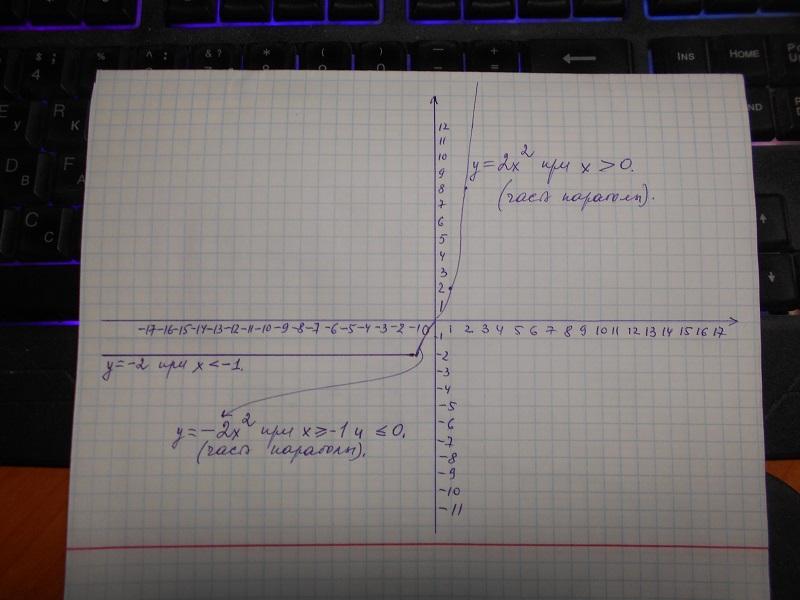 INS
HOME
12
11
10
9
8
7
6
5
4
3
2
1
y=2x² при x>0.
(часть параболы).
-17 -16 -15 -14 -13 -12 -11 -10 -9 -8 -7 -6 -5 -4 -3 -2 -1 0 1 2 3 4 5 6 7 8 9 10 11 12 13 14 15 16 17
-1
-2
-3
-4
-5
-6
-7
-8
-9
-10
-11
y=-2 при x<-1.
y=-2x² при x≥-1 и ≤0.
(часть параболы).